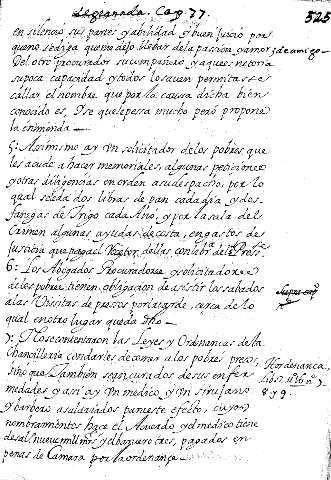 de granada. Cap. 77.
525
en silencio sus partes y abilidad y buen Juicio por
que no se diga que me dejo llevar de la passion, y amor de amigo -
Del otro procurador su compañero, y aques notoria
su poca capacidad y todos lo saven permitasse
callar el nombre que por la causa dicha bien
conocido es, Dse que le pessa mucho pero propone
la enmienda —
5: Assimismo ay un solicitador de los pobres que
les acude a hacer memoriales, algunas peticiones
y otras diligencias en orden a su despacho, por lo
qual se le da dos libras de pan cada dia y dos
fanegas de Trigo cada Año, y por la sala del
Crimen algunas ayudas de costa, en gastos de
Justicia que paga el Receptor dellas con
6: Los Abogados Procuradores y solicitadores
de los pobres tienen obligacion de asistir los sabados
a las Visitas de pressos por la tarde, cerca de lo
qual en otro lugar queda dho —
7: No se contentaron las Leyes y Ordenancas de la
Chancilleria con darles de comer a los pobres presos,
sino que Tambien sean curados de sus enfer
medades y asi ay un medico y un sirujano
y barbero asalariados para este efecto, cuyos
nombramientos hace el Acuerdo, y el medico tiene
de sal.º nueve mill mrs y el barvero tres, pagados en
penas de Camara por la ordenança —
Hordenanca,
Lib. 2
8 y 9.